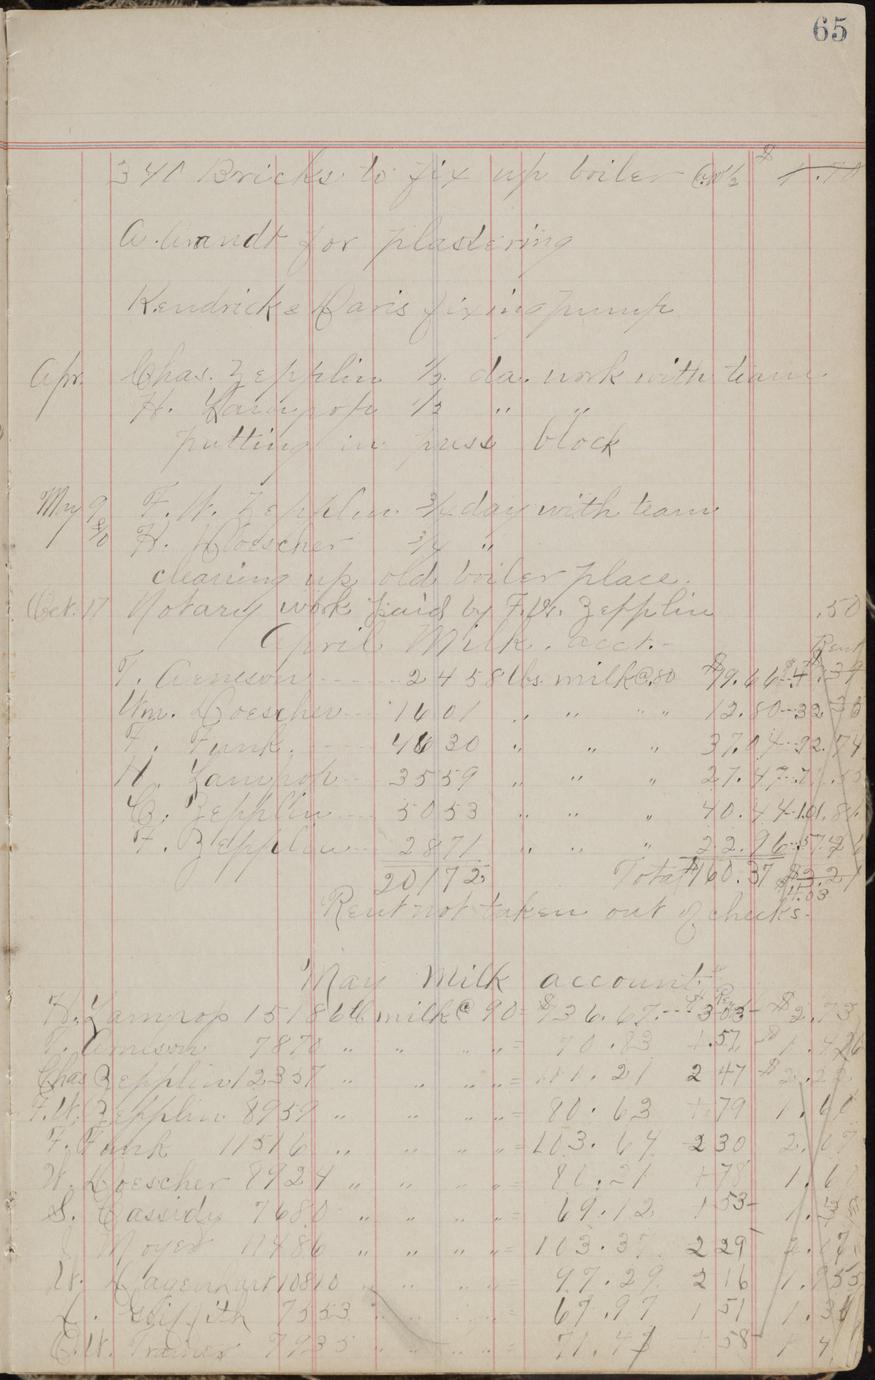 65
340 Bricks to fix up boiler @ ½ $ 1.70
A. Arandt for plastering
Kendrick & Davis fixing pump
Apr. Chas. Zepplin ½ da. work with team
H. Lampop ½ " "
putting in press block
May 9 F. W. Zepplin ¾ day with team
& 10 H. Doescher ¾ "
cleaning up old boiler place.
Oct. 17 Notary work paid by F.W. Zepplin .50
April Milk acct. Rent
T. Arneson 2458 lbs milk @ .80 $19.66
Wm. Doescher 1601 " " " " 12.80 32
F. Funk 4630 " " " 37.04 92.74
H. Lampop 3559 " " " 27.47
C. Zepplin 5053 " " " 40.44 101.8
F. Zepplin 2871 " " " 22.96 57.4
20172 Total $160.37
Rent not taken out of checks.
May Milk account
H. Lampop 15186 lb milk @ 90 = $136.67 $3 03 $2.73
T. Arneson 7870 " " " " = 70.83 1.57 $1.42
Chas Zepplin 12357 " " " " = 111.21 2 47 $2.22
F.W. Zepplin 8959 " " " " = 80.63 1 79 1.61
F. Funk 11516 " " " " = 103.64 2 30 2.07
W. Doescher 8924 " " " " 80.21 1 78 1.60
S. Cassidy 7680 " " " " = 69.12 1 53 1.38
Moyer 11486 " " " " = 103.37 2 29
W. Hagenhart 10810 " " " 97.29 2 16 1.95
7553 " " " = 67.97 1 51 1.36
E.W. 7935 " " " " = 71.4 1 58 1 4